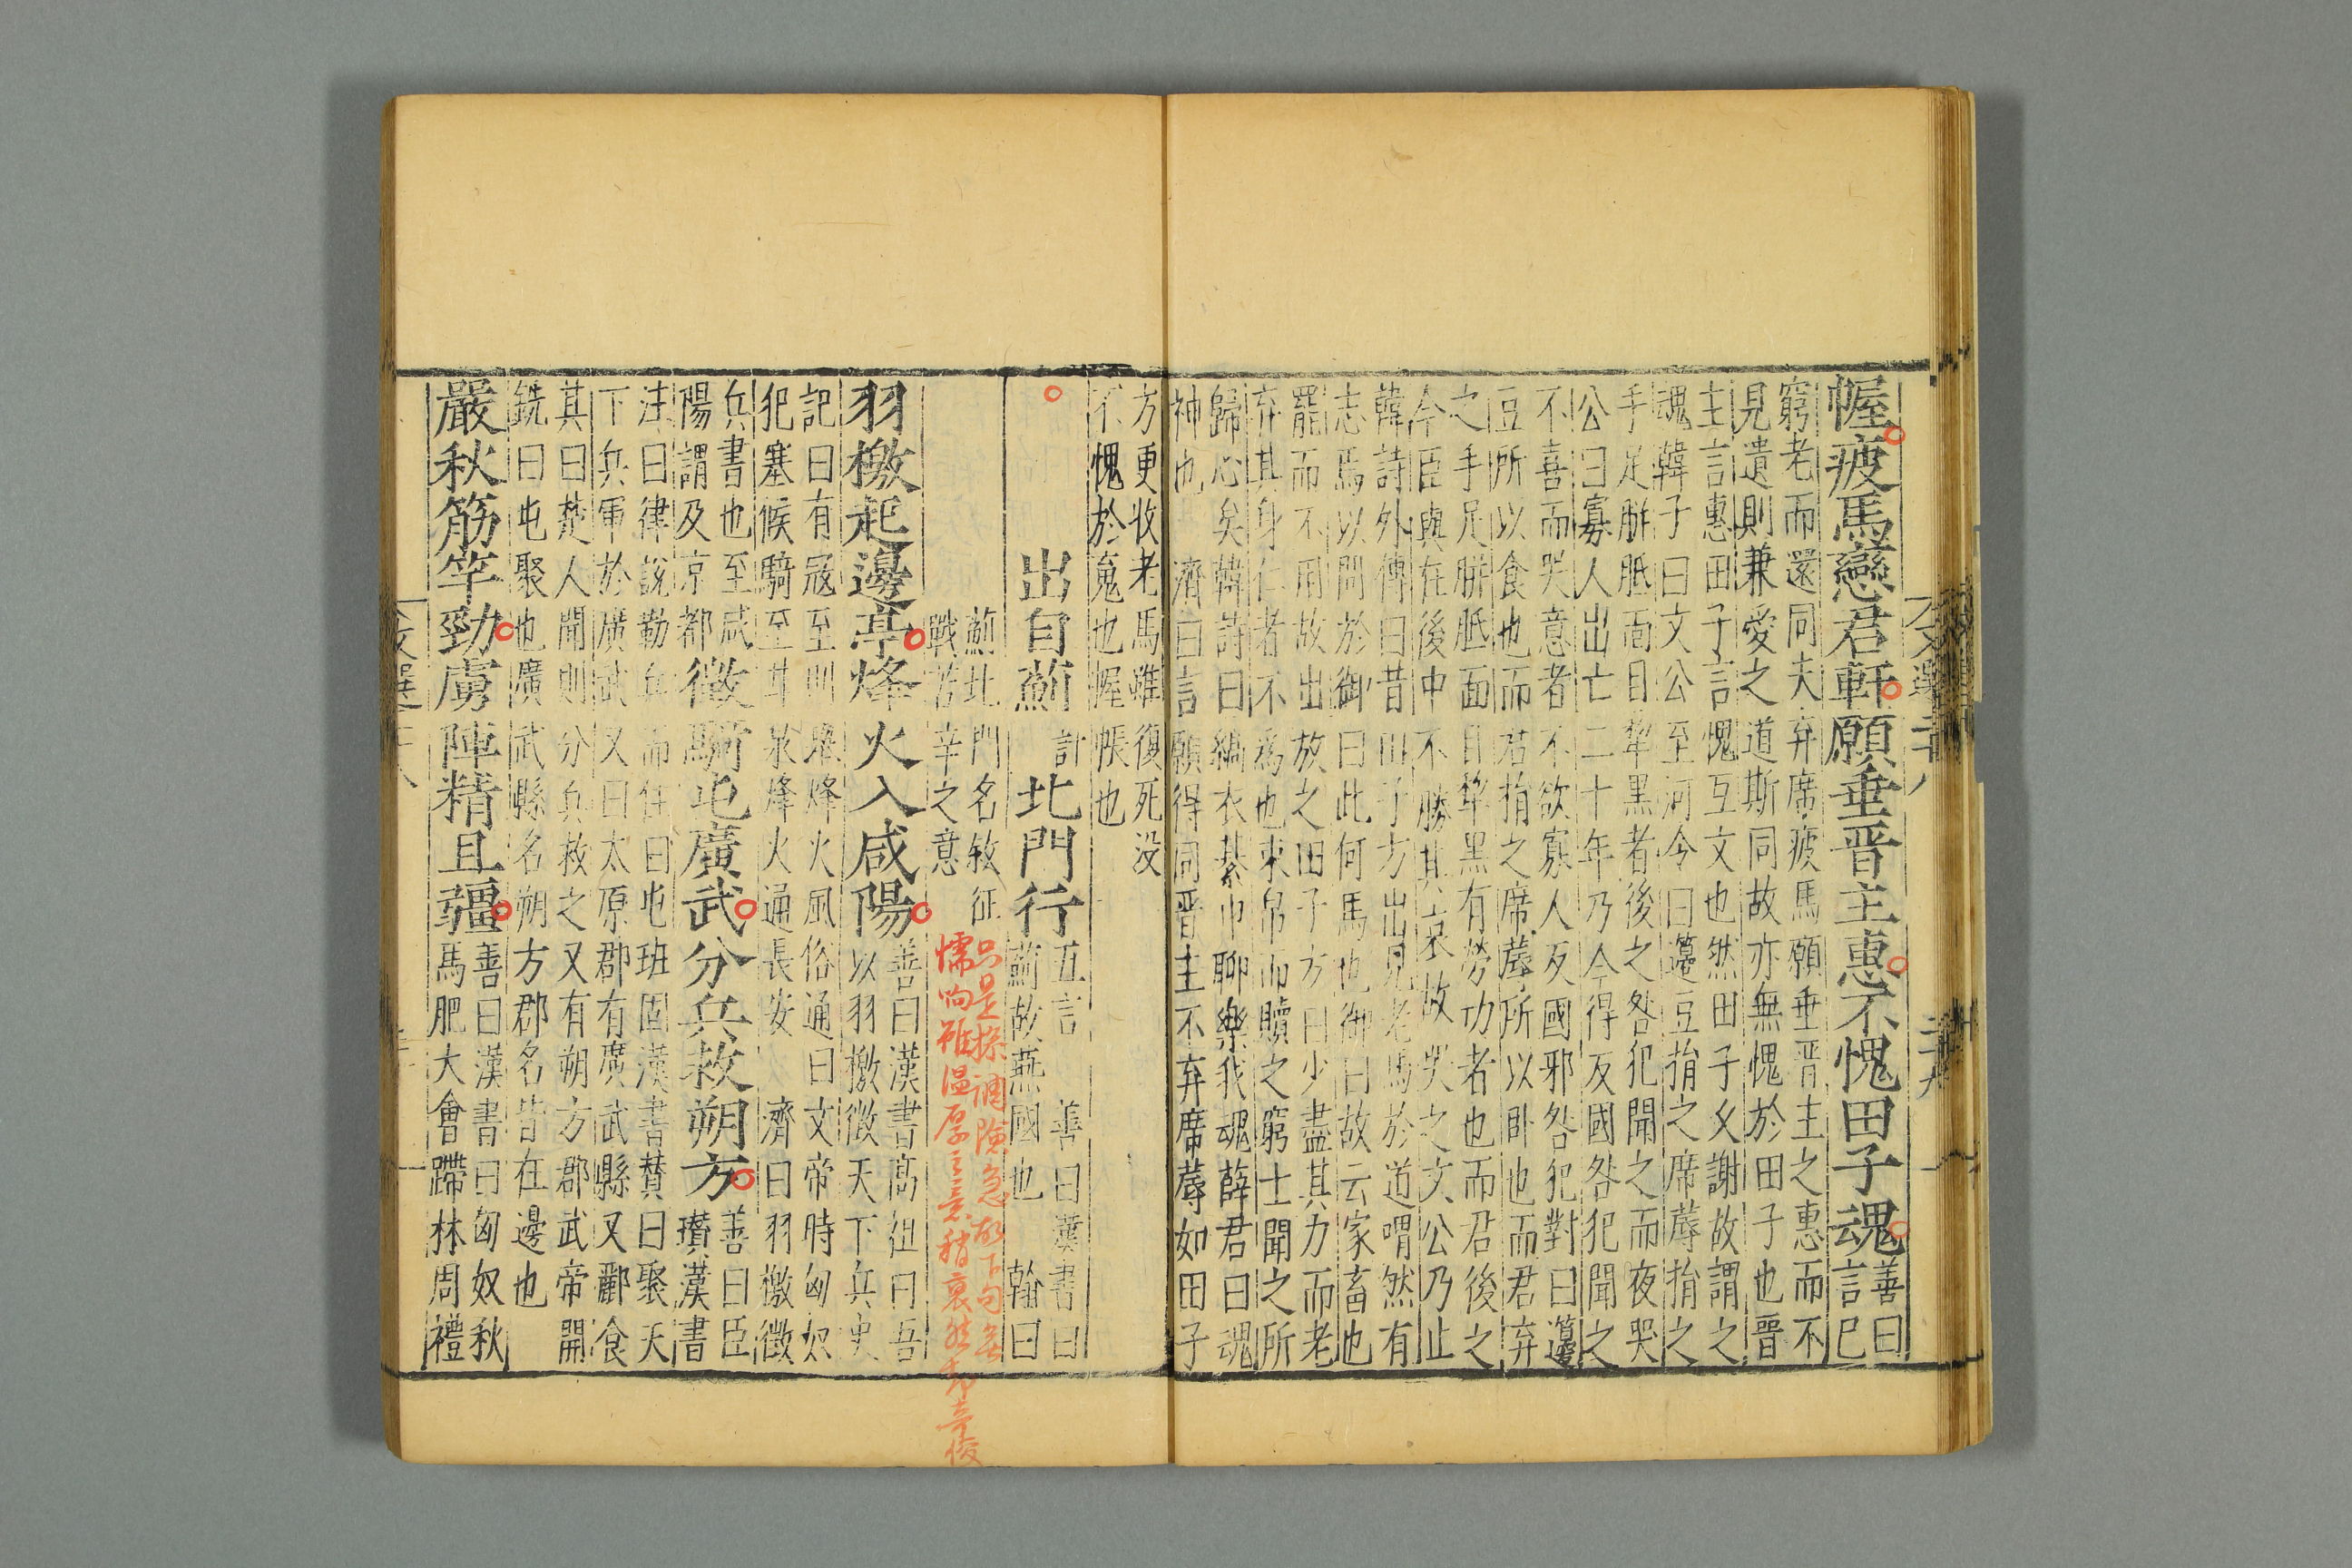 幄疲馬戀君軒願垂晋主惠不愧田子魂善曰
言巳
窮老而還同夫弃席疲馬願垂晋主之惠而不
見遺則兼愛之道斯同故亦無愧於田子也晋
主言惠田子言愧互文也然田子父謝故謂之
魂韓子曰文公至河令曰籩豆捐之席蓐捐之
手足胼胝面目犂黑者後之咎犯聞之而夜哭
公曰寡人出亡二十年乃今得反國咎犯聞之
不喜而哭意者不欲寡人反國邪咎犯對曰籩
豆所以食也而君捐之席蓐所以卧也而君弃
之手足胼胝面目犂黑有勞功者也而君後之
今臣與在後中不勝其哀故哭之文公乃止
韓詩外傳曰昔田子方出見老馬於道喟然有
志馬以問於御曰此何馬也御曰故云家畜也
罷而不用故出放之田子方曰少盡其力而老
弃其身仁者不爲也束帛而贖之窮士聞之所
歸心矣韓詩曰縞衣綦巾聊樂我魂薛君曰魂
神也 濟曰言願得同晋主不弃席蓐如田子
方更收老馬雖復死没
不愧於䰟也幄帳也
出自薊計北門行五言 善曰漢書曰
薊故燕國也 翰曰
薊北門名叙征
戰苦辛之意
羽檄起邊亭烽火入咸陽善曰漢書高祖曰吾
以羽檄徵天下兵史
記曰有寇至則舉烽火風俗通曰文帝時匈奴
犯塞候騎至甘泉烽火通長安 濟曰羽檄徵
兵書也至咸
陽謂及京都徵騎屯廣武分兵救朔方善曰臣
瓚漢書
注曰律說勒兵而住曰屯班固漢書贊曰聚天
下兵軍於廣武又曰太原郡有廣武縣又酈食
其曰楚人聞則分兵救之又有朔方郡武帝開
銑曰屯聚也廣武縣名朔方郡名皆在邊也
嚴秋筋竿勁虜陣精且彊善曰漢書曰匈奴秋
馬肥大會蹛林周禮